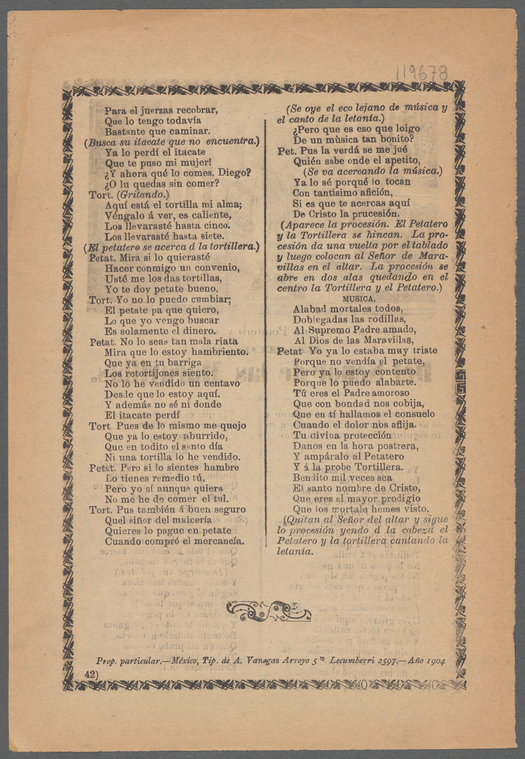 119678
Para el juerzas recobrar,
Que lo tengo todavía
Bastante que caminar.
(Busca su itacate que no encuentra.)
Ya lo perdí el itacate
Que te puso mi mujer!
¿Y ahora qué lo comes, Diego?
¿O lu quedas sin comer?
Tort. (Gritando.)
Aquí está el tortilla mi alma;
Véngalo á ver, es caliente,
Los llevarasté hasta cinco.
Los llevarasté hasta siete.
(El petatero se acerca á la tortillera.)
Petat. Mira si lo quierasté
Hacer conmigo un convenio,
Usté me los das tortillas,
Yo te doy petate bueno.
Tort. Yo no lo puedo cumbiar;
El petate pa que quiero,
Lo que yo vengo buscar
Es solamente el dinero.
Petat. No lo seas tan mala riata
Mira que lo estoy hambriento.
Que ya en tu barriga
Los retortijones siento.
No lo he vendido un centavo
Desde que lo estoy aquí.
Y además no sé ni donde
El itacate perdí
Tort. Pues de lo mismo me quejo
Que ya lo estoy aburrido,
Que en todito el santo día
Ni una tortilla lo he vendido.
Petat. Pero si lo sientes hambre
Lo tienes remedio tú,
Pero yo si aunque quiera
No me he de comer el tul.
Tort. Pus también á buen seguro
Quel siñor del maicería
Quieres lo pague en petate
Cuando compró el mercancía.
(Se oye el eco lejano de música y
el canto de la letanía.)
¿Pero que es eso que loigo
De un música tan bonito?
Pet. Pus la verdá se me jué
Quién sabe onde el apetito,
(Se va acercando la música.)
Ya lo sé porqué lo tocan
Con tantisimo afición,
Si es que te acercas aquí
De Cristo la prucesión.
(Aparece la procesión. El Petatero
y la Tortillera se hincan. La pro-
cesión da una vuelta por el tablado
y luego colocan al Señor de Mara-
villas en el altar. La procesión se
abre en dos alas quedando en el
centro la Tortillera y el Petatero.)
MUSICA.
Alabad mortales todos,
Doblegadas las rodillas,
Al Supremo Padre amado,
Al Dios de las Maravillas,
Petat Yo ya lo estaba muy triste
Porque no vendía el petate,
Pero ya lo estoy contento
Porque lo puedo alabarte.
Tú eres el Padre amoroso
Que con bondad nos cobija,
Que en tí hallamos el consuelo
Cuando el dolor nos aflija.
Tu divina protección
Danos en la hora postrera,
Y ampáralo al Petatero
Y á la probe Tortillera.
Bendito mil veces sea
El santo nombre de Cristo,
Que eres el mayor prodigio
Que los mortale hemes visto,
(Quitan al Señor del altar y sigue
lo procesión yendo á la cabeza el
Petatero y la tortillera cantando la
letanía.
Prop. particular.—México, Tip. de A. Vanegas Arroyo 5ª Lecumberri 2597.—Año 1904
42)